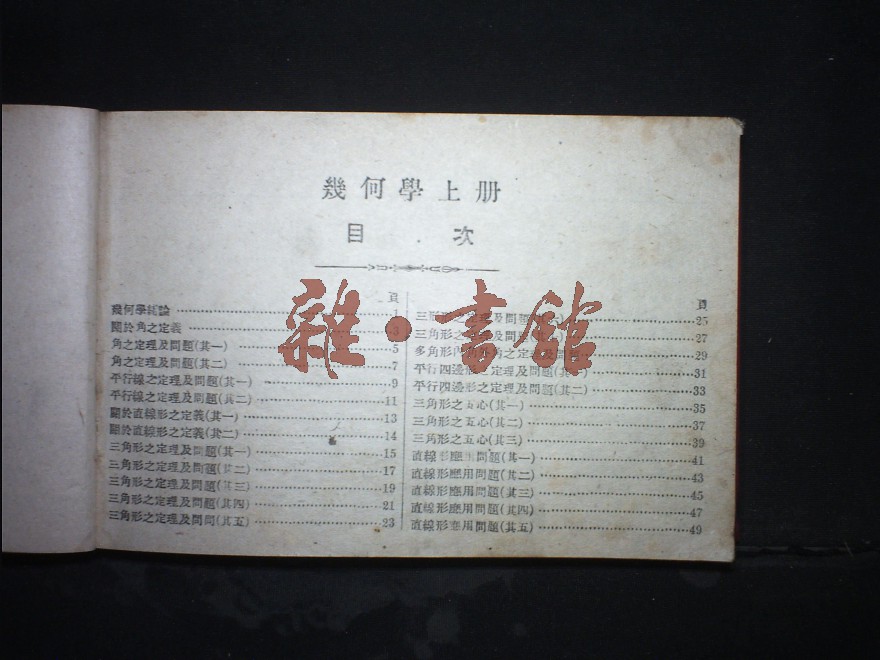 幾何學上册
目次
頁
幾何學總論 1
關於角之定義 3
角之定理及問題(其一) 5
角之定理及問題(其二) 7
平行線之定理及問題(其一) 9
平行線之定理及問題(其二) 11
關於直線形之定義(其一) 13
關於直線形之定義(其二) 14
三角形之定理及問題(其一) 15
三角形之定理及問題(其二) 17
三角形之定理及問題(其三) 19
三角形之定理及問題(其四) 21
三角形之定理及問問(其五) 23
頁
三角形 定理及問題 25
三角形之 及問題 27
多角形 角之定理 29
平行四邊形 定理及問題(其一) 31
平行四邊形之定理及問題(其二) 33
三角形之五心(其一) 35
三角形之五心(其二) 37
三角形之五心(其三) 39
直線形應用問題(其一) 41
直線形應用問題(其二) 43
直線形應用問題(其三) 45
直線形應用問題(其四) 47
直線形應用問題(其五) 49
雜·書館